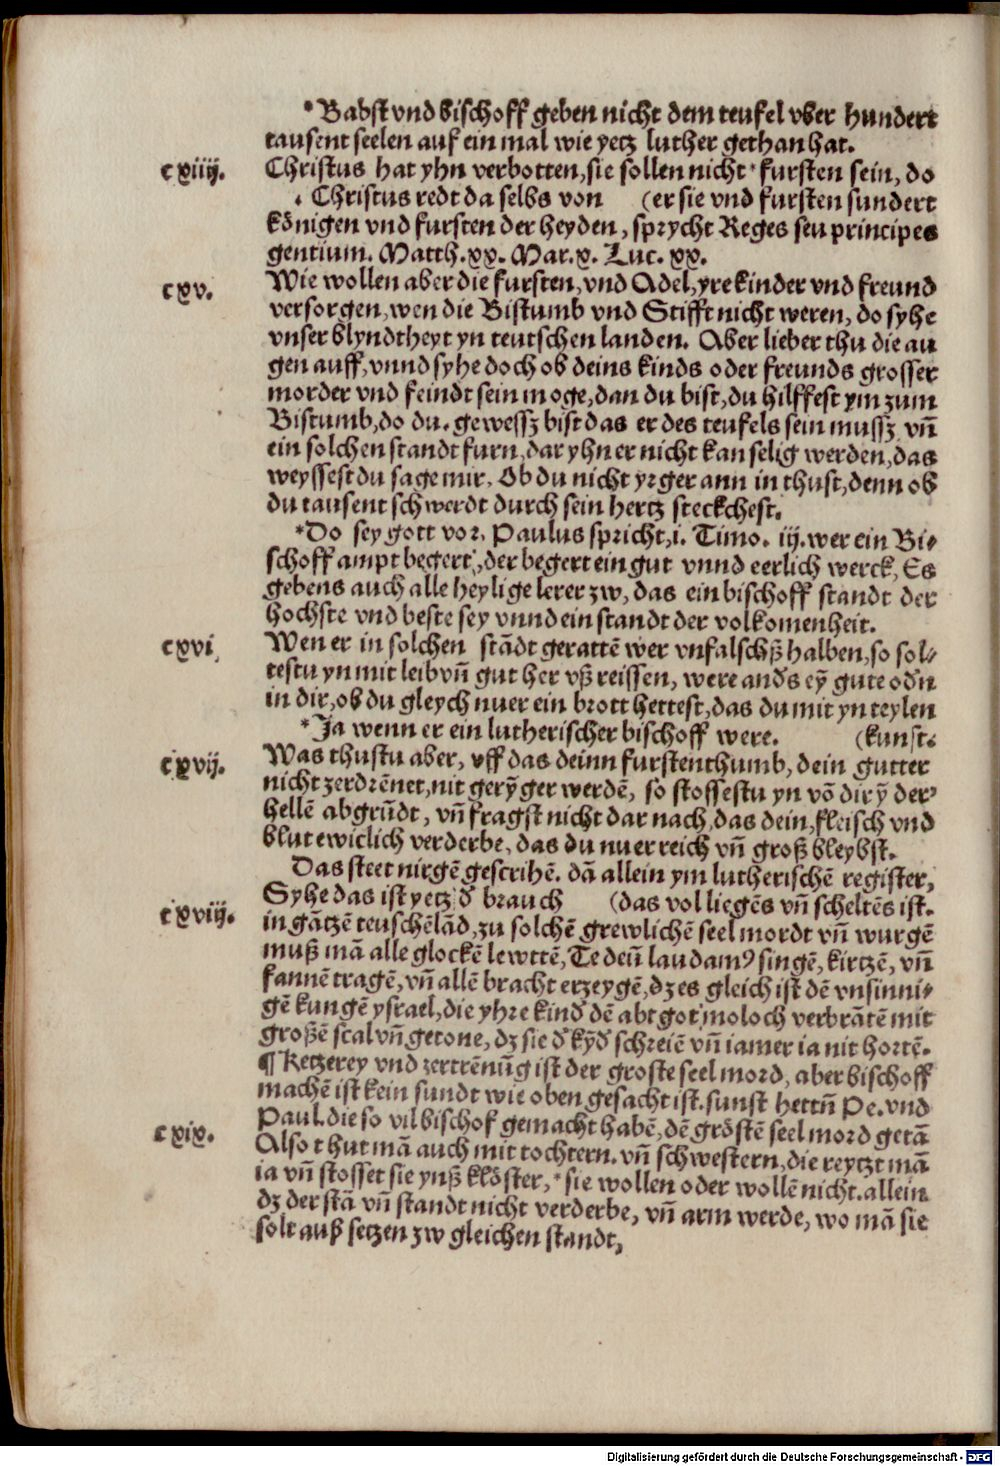 *Babst vnd bischoff geben nicht dem teufel vber hundert
tausent seelen auf ein mal wie yetz luther gethan hat.
cxiiij. Christus hat yhn verbotten, sie sollen nicht *fursten sein, do
* Christus redt da selbs von (er sie vnd fursten sundert
königen vnd fursten der heyden, sprycht Reges seu principes
gentium. Matth. xx. Mar. x. Luc. xx.
cxv. Wie wollen aber die fursten, vnd Adel, yre kinder vnd freund
versorgen, wen die Bistumb vnd Stifft nicht weren, do syhe
vnser blyndtheyt yn teutschen landen. Aber lieber thu die au
gen auff, vnnd syhe doch ob deins kinds oder freunds grosser
morder vnd feindt sein moge, dan du bist, du hilffest ym zum
Bistumb, do du. gewessz bist das er des teufels sein mussz vn̄
ein solchen standt furn, dar yhn er nicht kan selig werden, das
weyssest du sage mir. Ob du nicht yrger ann in thust, denn ob
du tausent schwerdt durch sein hertz steckchest.
*Do sey gott vor. Paulus spricht, i. Timo. iij. wer ein Bi⸗
schoff ampt begert, der begert ein gut vnnd eerlich werck, Es
gebens auch alle heylige lerer zw, das ein bischoff standt der
hochste vnd beste sey vnnd ein standt der volkomenheit.
cxvi. Wen er in solchen stādt gerattē wer vnfalschß halben, so sol⸗
testu yn mit leib vn̄ gut her vß reissen, were anďs eȳ gute oďn
in dir, ob du gleych nuer ein brott hettest, das du mit yn teylen
*Ja wenn er ein lutherischer bischoff were. (kunst.
cxvij. Was thustu aber, vff das deinn furstenthumb, dein gutter
nicht zerdrēnet, nit gerȳger werdē, so stossestu yn vō dir ȳ der
hellē abgrūdt, vn̄ fragst nicht dar nach das dein, fleisch vnd
blut ewiclich verderbe, das du nuer reich vn̄ groß bleybst.
Das steet nirgē gescribē. dā allein ym lutherischē register,
cxviij. Syhe das ist yetz ď brauch (das vol liegēs vn̄ scheltēs ist.
in gātzē teuschēlād, zu solchē grewlichē seel mordt vn̄ wurgē
muß mā alle glockē lewttē, Te deū laudamꝰ singē, kirtzē, vn̄
fannē tragē, vn̄ allē bracht erzeygē, dz es gleich ist dē vnsinni⸗
gē kungē ysrael, die yhre kinď dē abtgot moloch verbrātē mit
großē scal vn̄ getone, dz sie ď kȳď schreiē vn̄ iamer ia nit hortē.
¶ Ketzerey vnd zertrēnūg ist der groste seel mord, aber bischoff
machē ist kein sundt wie oben gesacht ist. sunst hettn̄ Pe. vnd
Paul. die so vil bischof gemacht habē, dē gröstē seel mord getā
cxix. Also thut mā auch mit tochtern. vn̄ schwestern, die reytzt mā
ia vn̄ stosset sie ynß klöster, *sie wollen oder wollē nicht. allein
dz der stā vn̄ standt nicht verderbe, vn̄ arm werde, wo mā sie
solt auß setzen zw gleichen standt,
Digitalisierung gefördert durch die Deutsche Forschungsgemeinschaft - DFG